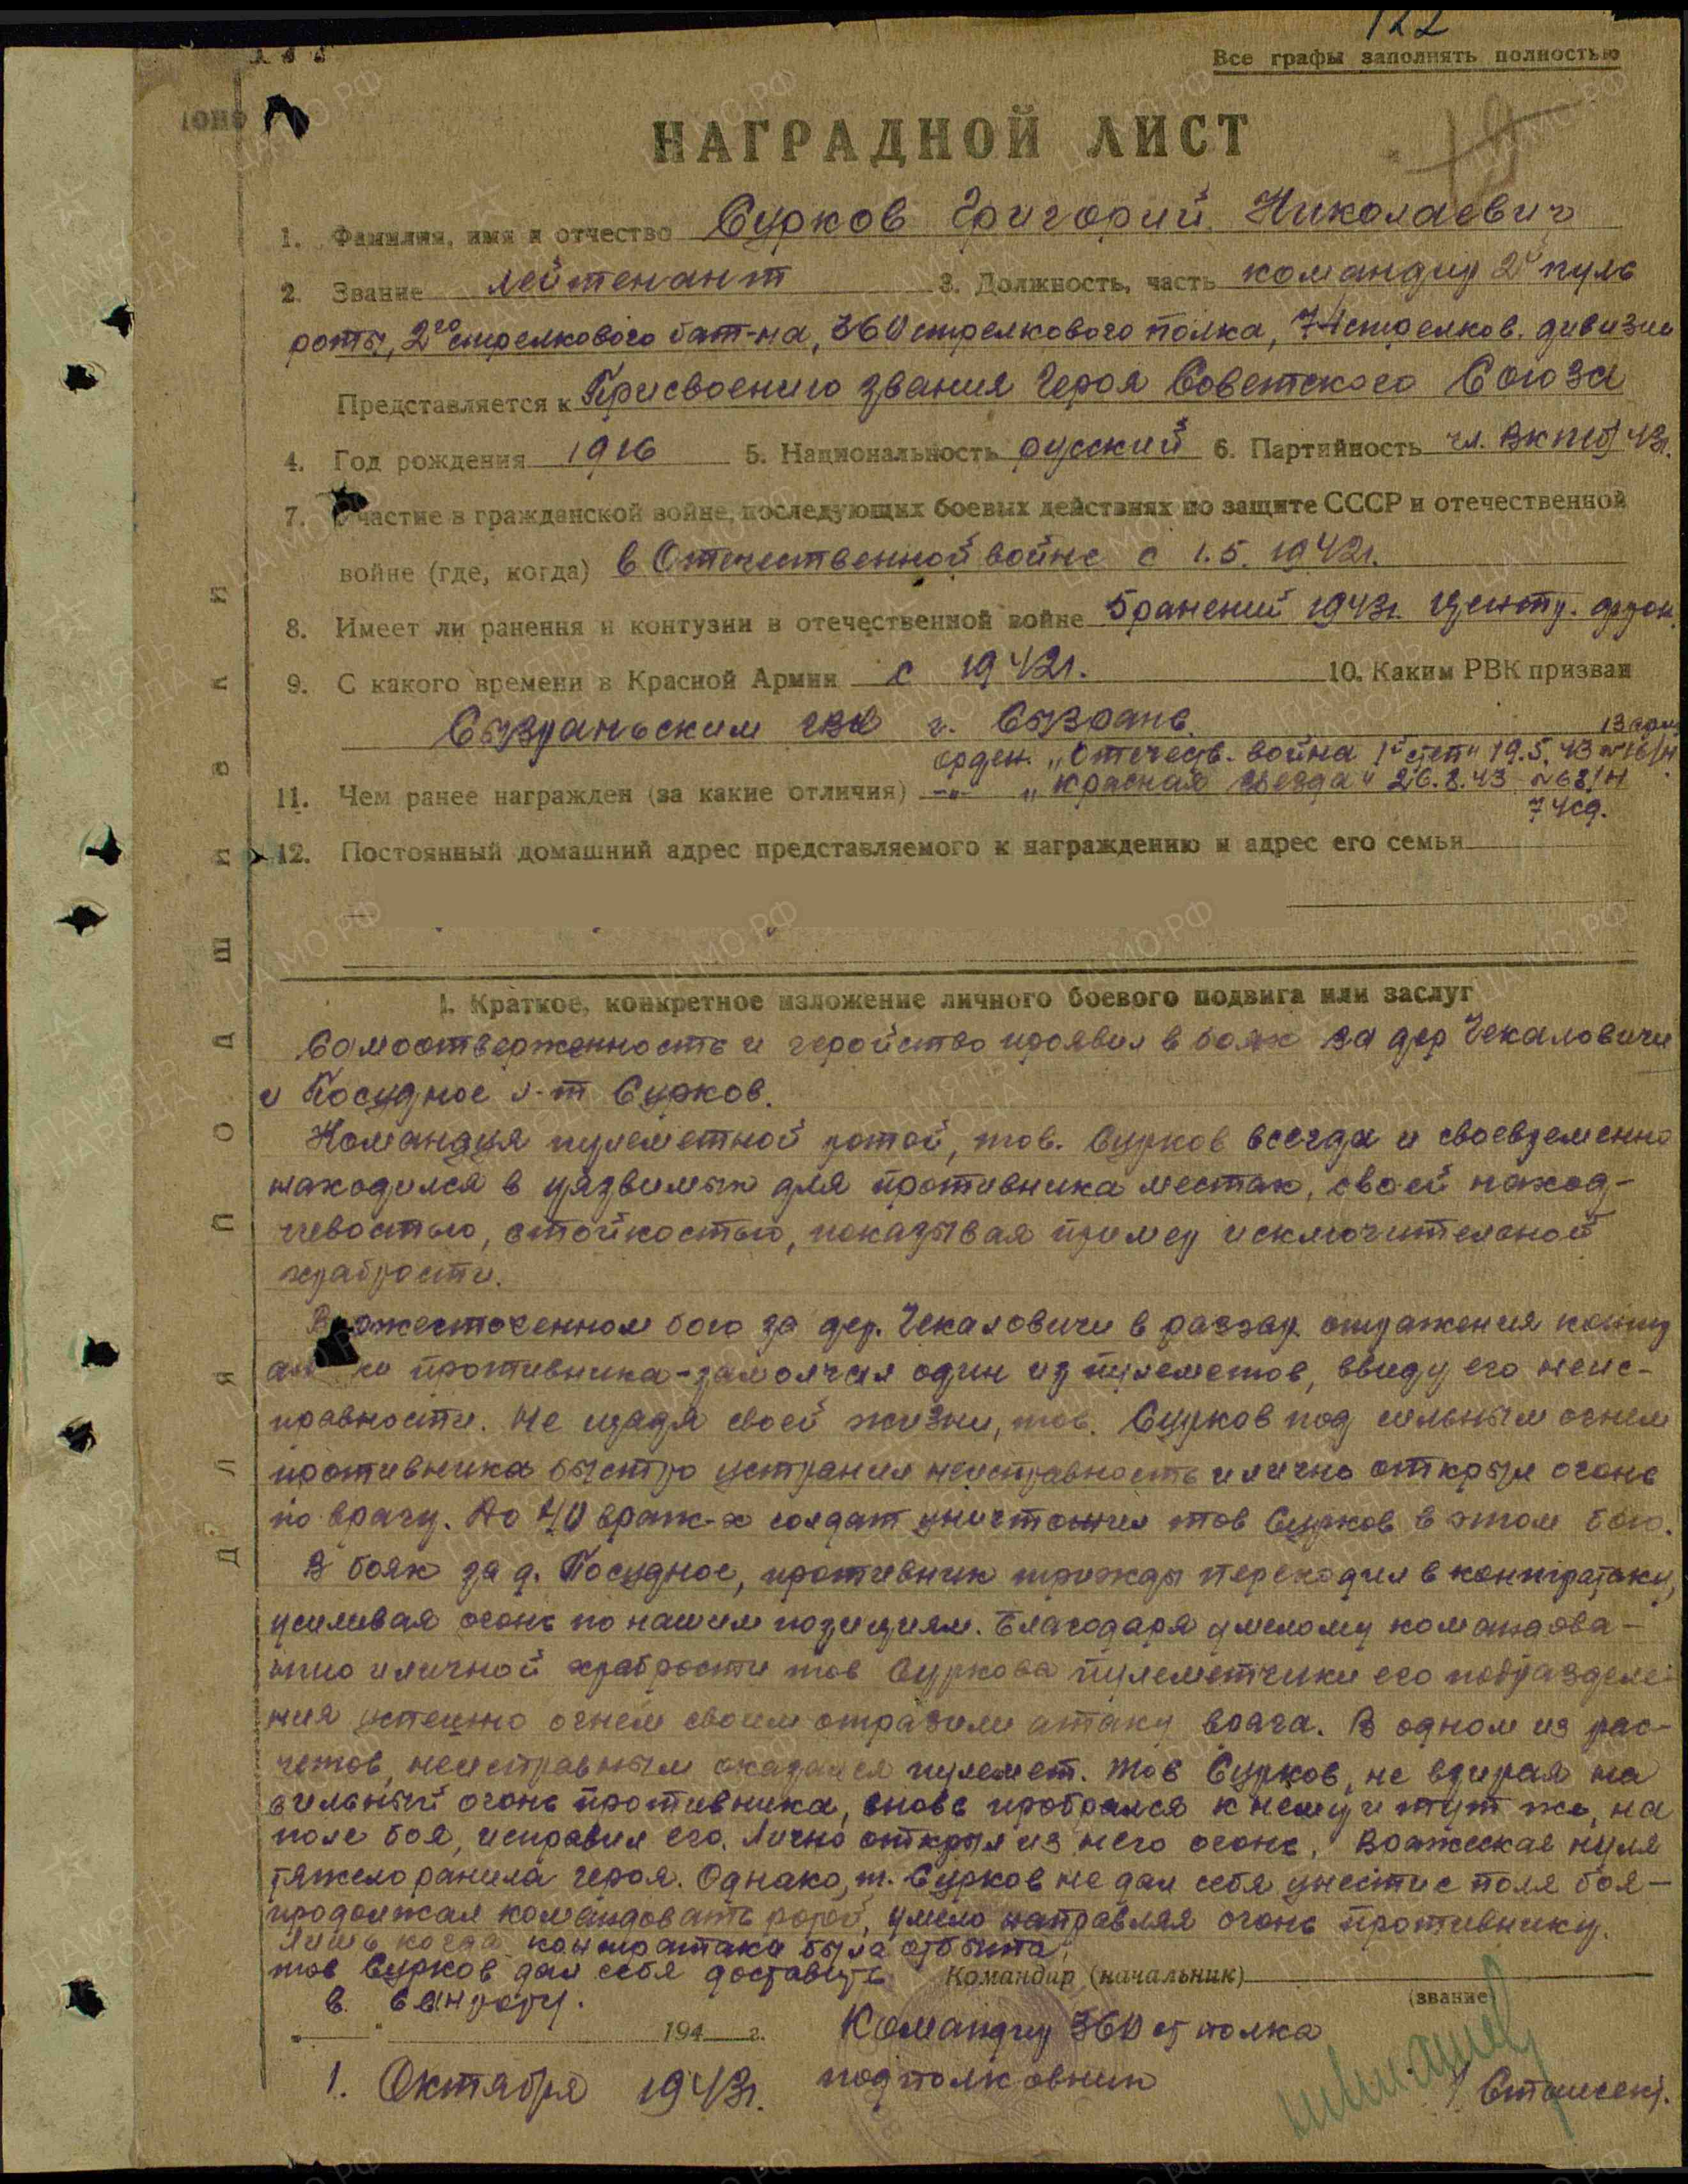 122
Все графы заполнять полностью
НАГРАДНОЙ ЛИСТ
19
1. Фамилия, имя и отчество Сурков Григорий Николаевич
2. Звание лейтенант 3. Должность, часть командир 2й пуль
роты, 2го стрелкового бат-на, 360 стрелкового полка, 74 стрелков. дивизии
Представляется к Присвоению звания Героя Советского Союза
4. Год рождения 1916 5. Национальность русский 6. Партийность чл. ВКП(б) 43г.
7. Участие в гражданской войне, последующих боевых действиях по защите СССР и отечественной
войне (где, когда) в Отечественной войне с 1.5.1942г.
8. Имеет ли ранения и контузии в отечественной войне 5 ранений 1943г. Центр. фрон.
9. С какого времени в Красной Армии с 1942г. 10. Каким РВК призван
Сызраньским ГВК г. Сызрань
орден. „Отечеств. война 1й степ" 19.5.43 №16/н 13
11. Чем ранее награжден (за какие отличия) -„- „Красная звезда" 26.8.43 №68/н
74сд.
12. Постоянный домашний адрес представляемого к награждению и адрес его семьи
1. Краткое, конкретное изложение личного боевого подвига или заслуг
Самоотверженность и геройство проявил в боях за дер Чекаловичи
и Посудное л-т Сурков.
Командуя пулеметной ротой, тов. Сурков всегда и своевременно
находился в уязвимых для противника местах, своей наход-
чивостью, стойкостью, показывая пример исключительной
храбрости.
В ожесточенном бою за дер. Чекаловичи в разгар отражения контр
атаки противника-замолчал один из пулеметов, ввиду его неис-
правности. Не щадя своей жизни, тов. Сурков под сильным огнем
противника быстро устранил неисправность и лично открыл огонь
по врагу. До 40 враж-х солдат уничтожил тов Сурков в этом бою.
В боях за д. Посудное, противник трижды переходил в контратаку,
усиливая огонь по нашим позициям. Благодаря умелому командова-
нию и личной храбрости тов Суркова пулеметчики его подразделе-
ния успешно огнем своим отразили атаку врага. В одном из рас-
четов, неисправным оказался пулемет. Тов Сурков, не взирая на
сильный огонь противника, вновь пробрался к нему и тут же, на
поле боя, исправил его. Лично открыл из него огонь. Вражеская пуля
тяжело ранила героя. Однако, т. Сурков не дал себя унести с поля боя-
продолжал командовать ротой, умело направляя огонь противнику.
Лишь когда контратака была отбита,
тов Сурков дал себя доставить Командир (начальник)
в санроту. (звание)
„ " 194 г. Командир 360 сп полка
1. Октября 1943г. подполковник
ДЛЯ ПОДШИВКИ